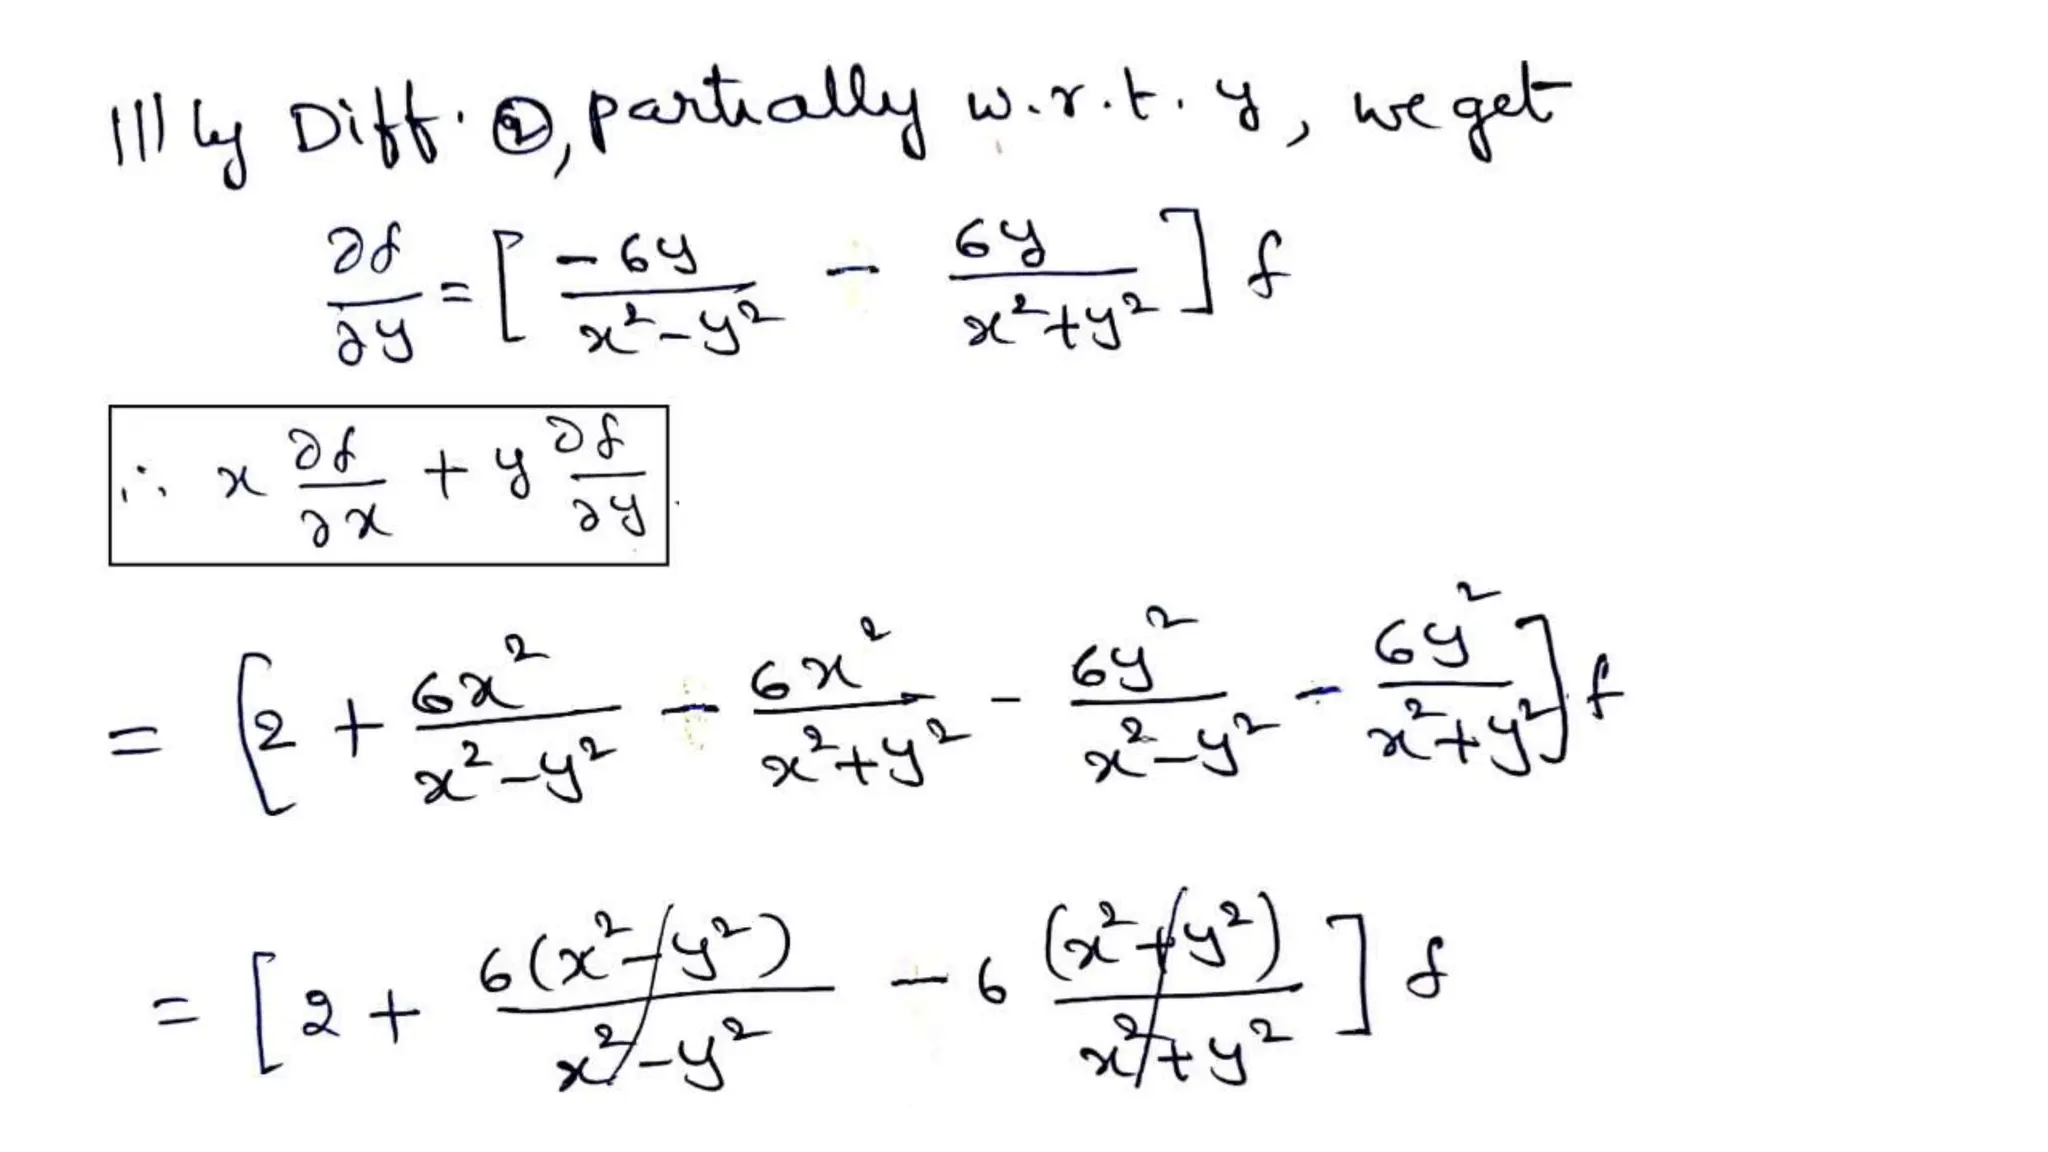 |||ly Diff. ②, partially w.r.t. y, we get
∂f/∂y = [ -6y/(x²-y²) - 6y/(x²+y²) ] f
∴ x ∂f/∂x + y ∂f/∂y
= [ 2 + 6x²/(x²-y²) - 6x²/(x²+y²) - 6y²/(x²-y²) - 6y²/(x²+y²) ] f
= [ 2 + 6(x²-y²)/(x²-y²) - 6 (x²+y²)/(x²+y²) ] f